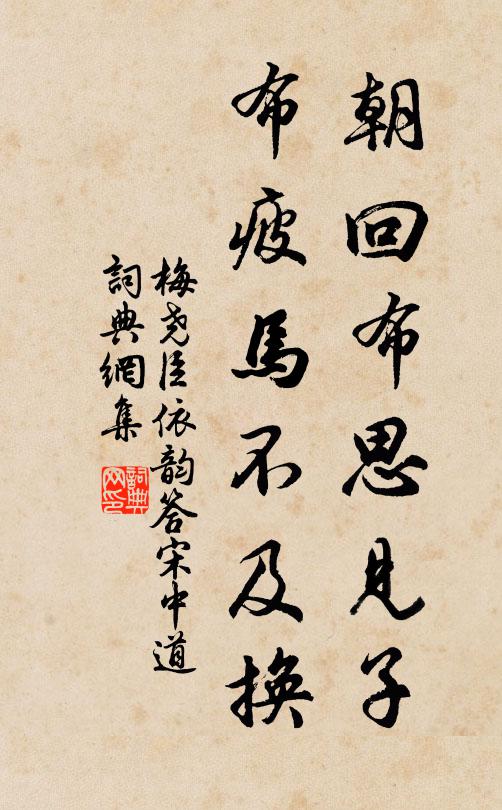 朝回布思見子
布疲馬不及換
梅尧臣依韵答宋中道
詞典網集
詞典網印